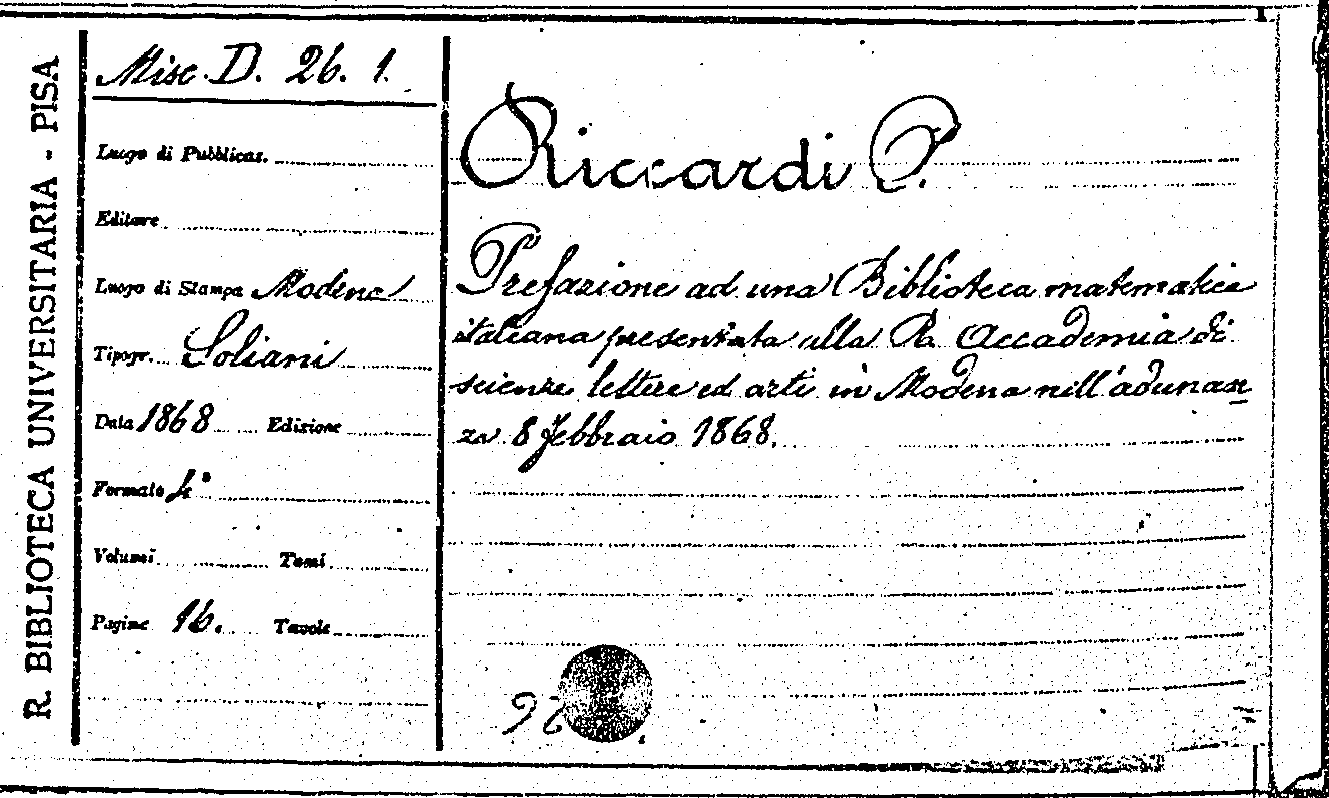 R. BIBLIOTECA UNIVERSITARIA - PISA
Misc. D. 26. 1.
Luogo di Pubblicaz.
Editore
Luogo di Stampa Modena
Tipogr. Soliani
Data 1868 Edizione
Formato 4°
Volumi Tomi
Pagine 16. Tavole
Riccardi P.
Prefazione ad una Biblioteca matematica
italiana presentata alla R. Accademia di
scienze lettere ed arti in Modena nell'adunan
za 8 febbraio 1868.